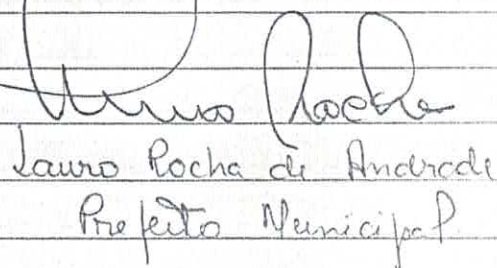 Lauro Rocha
Lauro Rocha de Andrade
Prefeito Municipal